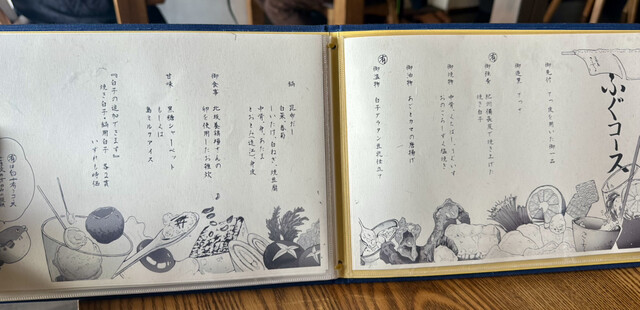 ふぐコース
御先付 てっぴ
御造里 てっさ
㊒ 御焼肴 紀州備長炭で焼き上げた
焼き白子
御焼物
中骨、くちばし、
みのこんがり塩焼き
御油物 あごとカマの唐揚げ
㊒ 御蓋物 白子グラタン豆乳仕立て
鍋 昆布だし
白菜 春菊
しいたけ、白ねぎ、焼豆腐
中骨、身、あたま
とおとうみ、身皮
御食事 北坂養鶏場さんの
卵を使用したお雑炊
甘味 黒糖シャーベット
もしくは
島ミルクアイス
『白子の追加できます』
焼き白子・鍋用白子 各2貫
いずれも時価
㊒は白子有コース